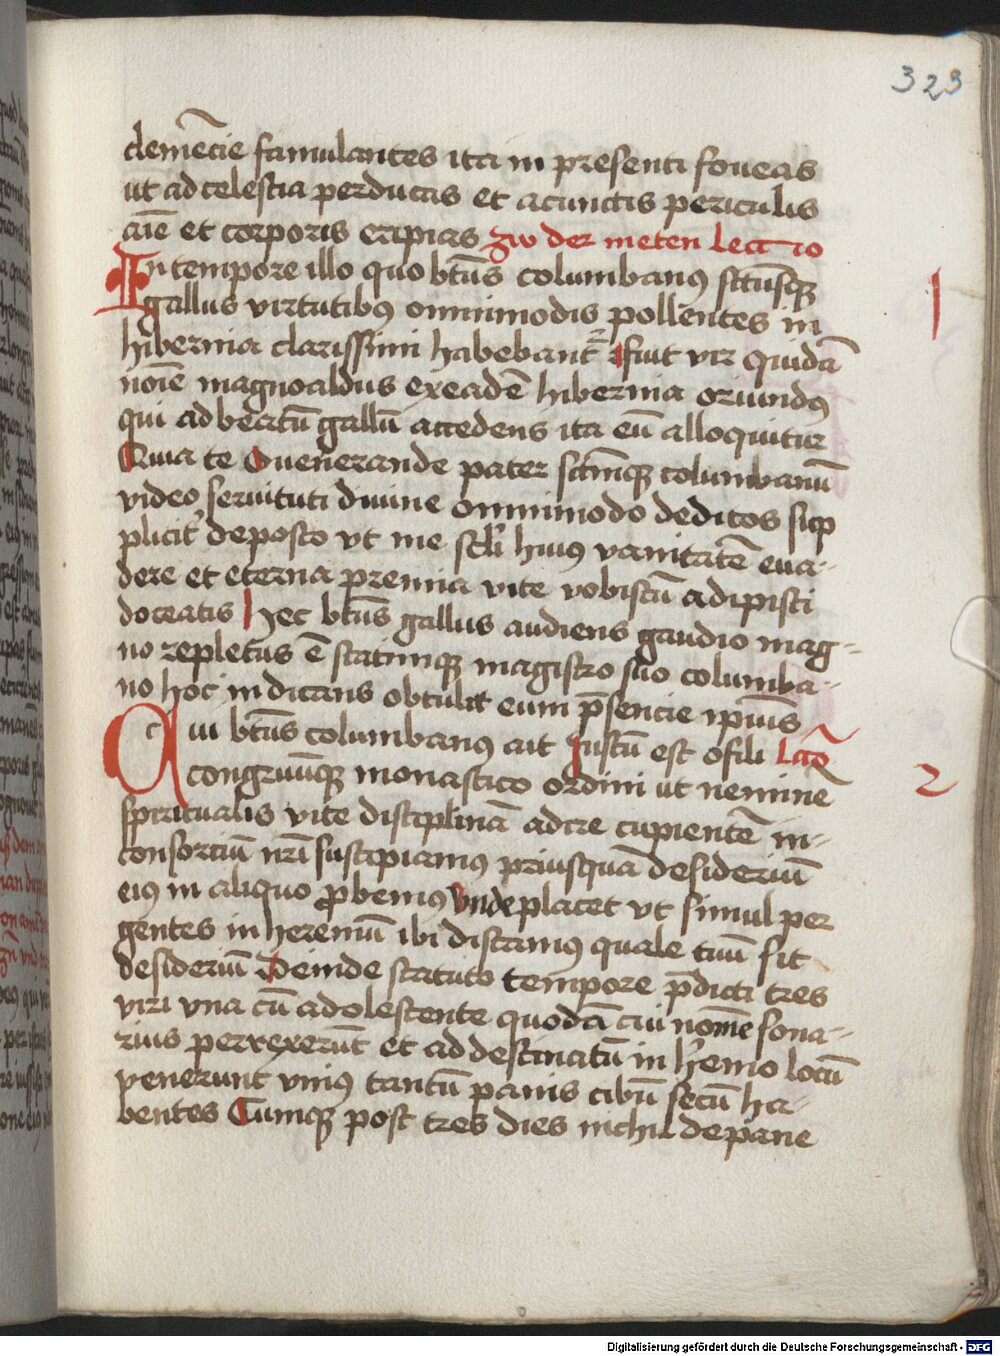 323
clemēcie famulantes ita in presenti foveas
ut ad celestia perducas et a cunctis periculis
aīe et corporis eripias zw der meten Lectio
In tempore illo quo btūs columbanꝰ sctūsqꝫ
1
gallus virtutibꝰ omnimodis pollentes in
hibernia clarissimi habebant᷑ fuit vir quidā
noīe magnoaldus ex eadē hibernia oriundꝰ
qui ad beatū gallū accedens ita eū alloquitur
Quia te O venerande pater sctmqꝫ columbanū
video servituti divine omnimodo deditos sup
plicit᷑ deposco vt me scl̄i huiꝰ vanitatē eva-
dere et eterna premia vite vobiscū adipisci
doceatis Hec btūs gallus audiens gaudio mag-
no repletus ē statimqꝫ magistro suo columba-
no hoc indicans obtulit eum p̄sencie ipiūs
Cui btūs columbanꝰ ait Justū est o fili Lcō
2
congruūqꝫ monastico ordini ut neminē
spiritualis vite disciplinā adire cupientē in-
consorciū nrī suscipiamꝰ priusquā desideriū
eiꝰ in aliquo ꝓbemꝰ Vnde placet vt simul per
gentes in heremū ibi discamꝰ quale tuū sit
desideriū Deinde statuto tempore p̄dicti tres
viri vna cū adolescente quodā cui nomē sona-
rius perrexerūt et ad destinatū in h̓emo locū
venerunt vniꝰ tantū panis cibū secū ha-
bentes Cumqꝫ post tres dies nichil de pane
Digitalisierung gefördert durch die Deutsche Forschungsgemeinschaft - DFG